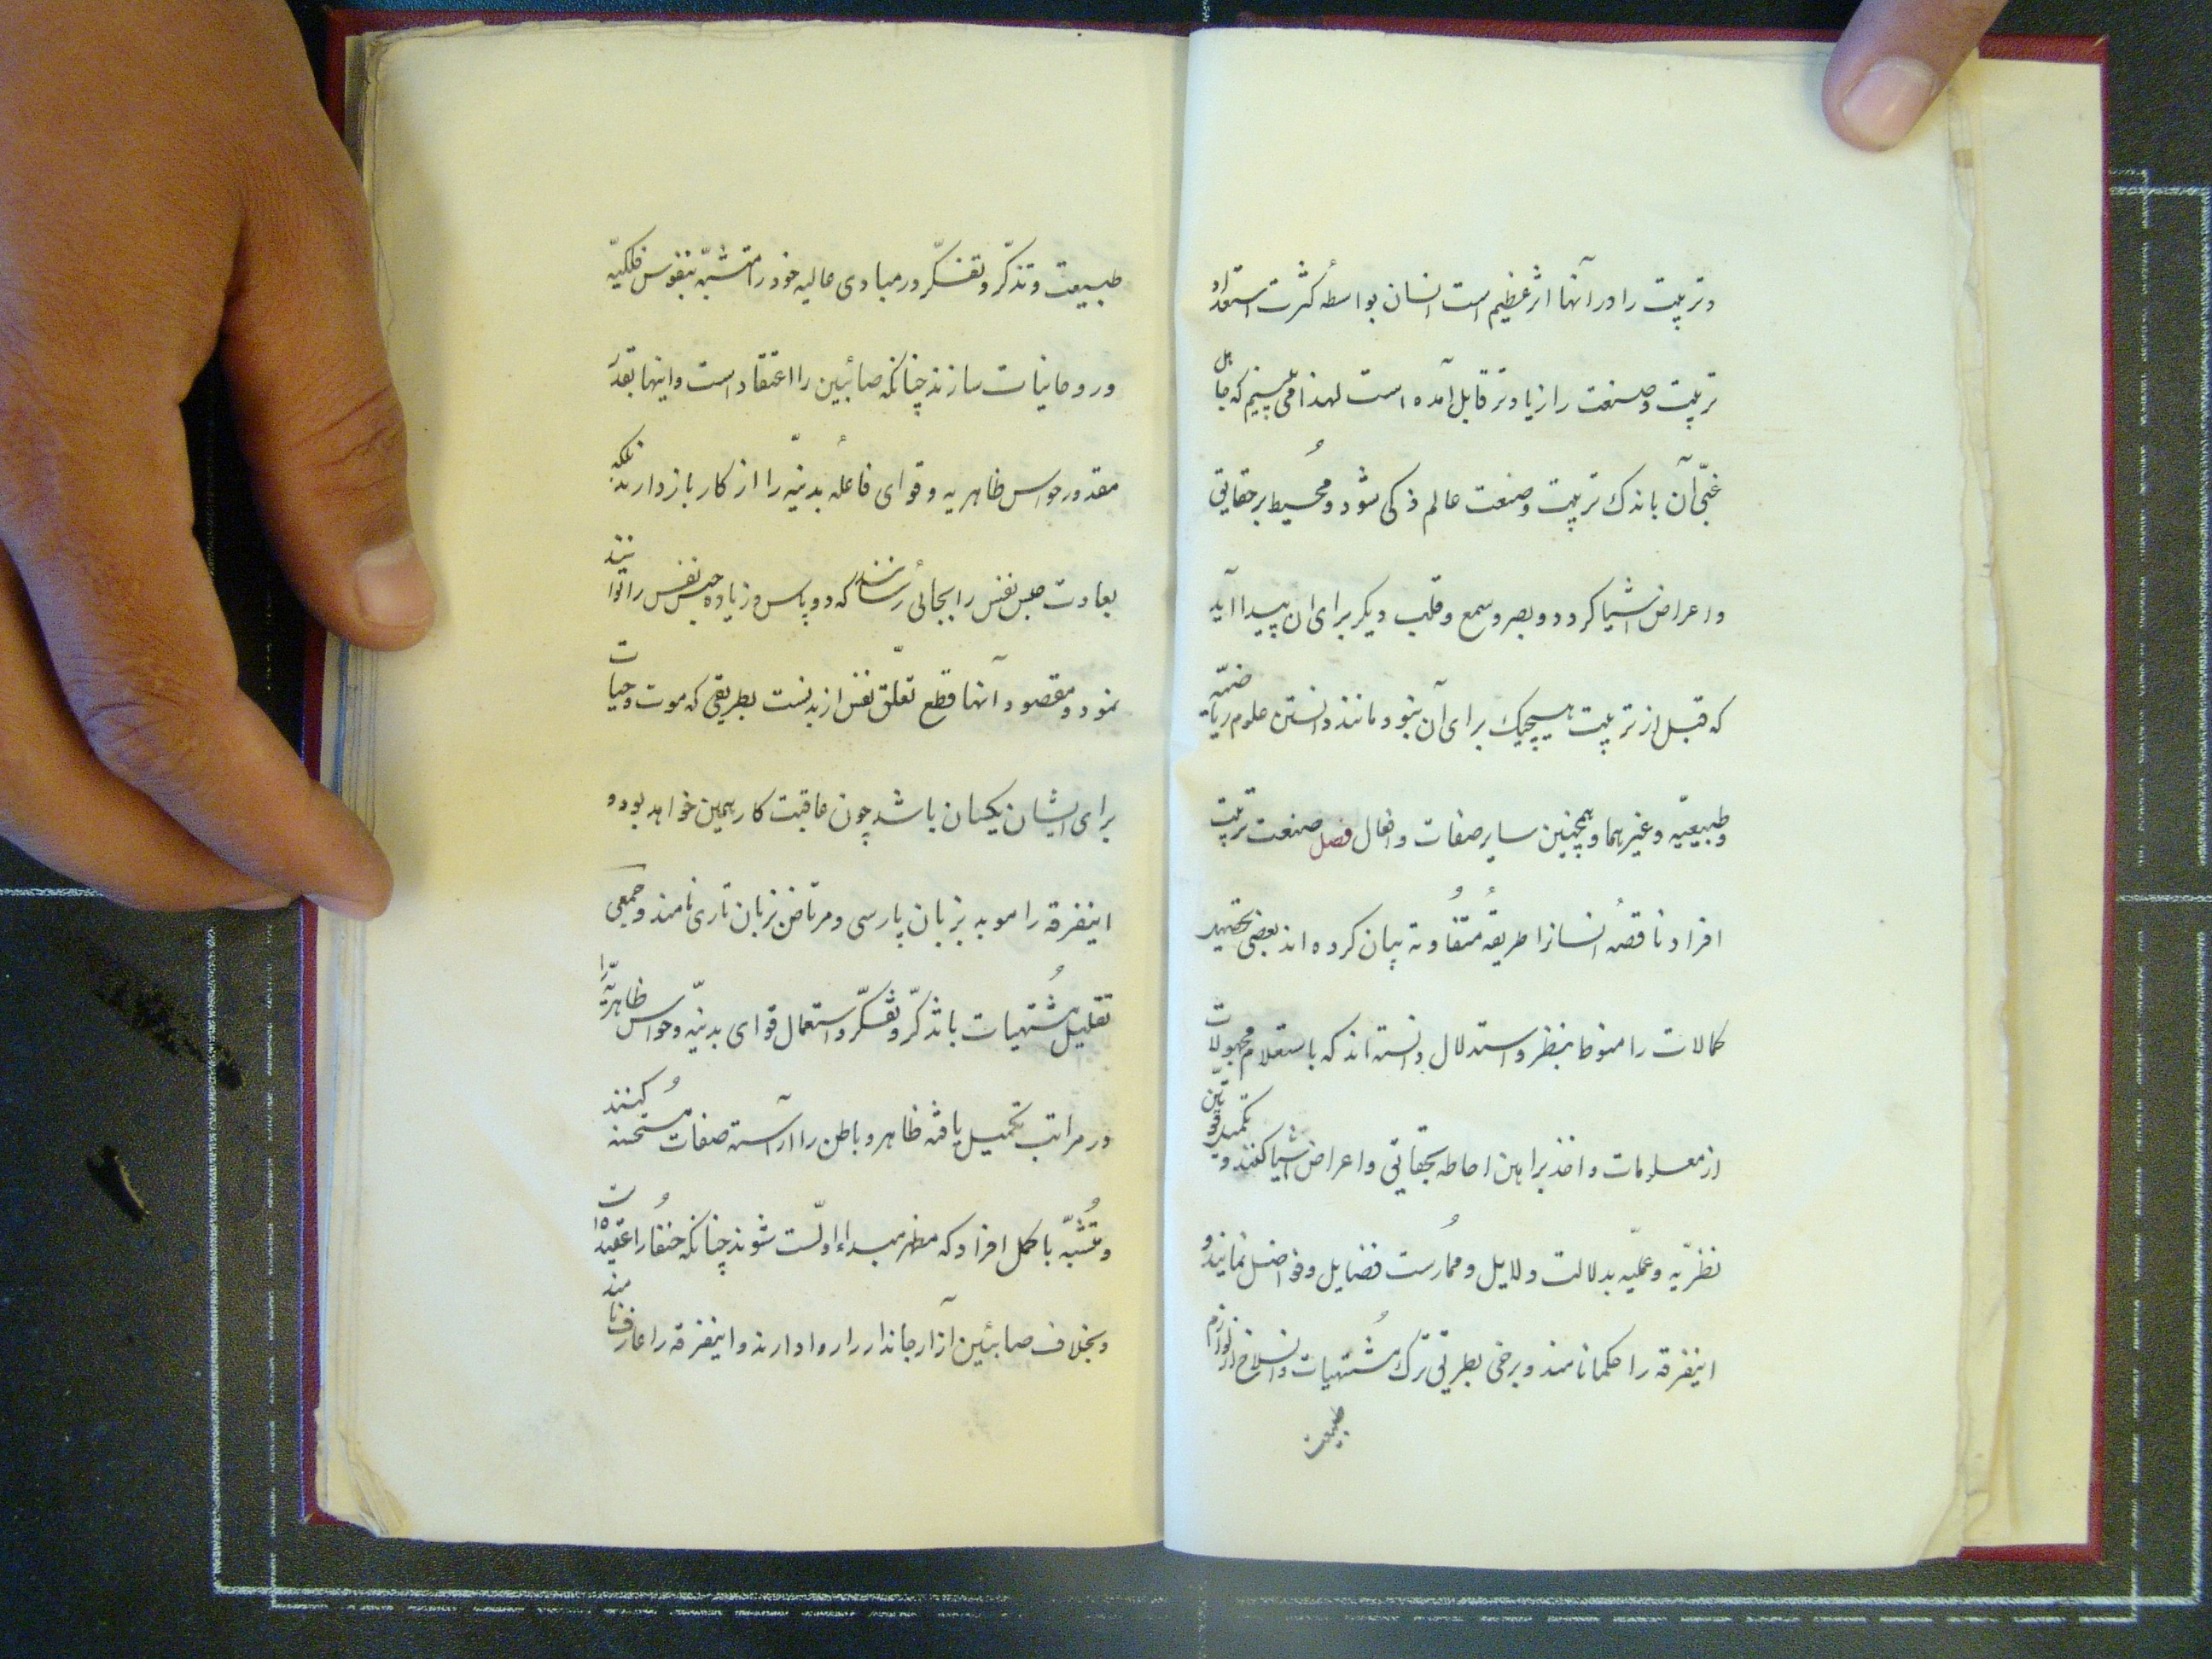 وتربیت را در آنها اثر عظیم است انسان بواسطه کثرت استعداد
تربیت وصنعت را زیادتر قابل آمده است لهذا می بینیم که جاهل
غبّی آن باندک تربیت وصنعت عالم ذکی شود ومُحیط بر حقایق
واعراض اشیا کردد وبصر وسمع وقلب دیکر برای ان پیدا آید
که قبل از تربیت هیچیک برای آن نبود مانند دانستن علوم ریاضیّه
وطبیعیّه وغیرهما وهمچنین سایر صفات وافعال فصل صنعت تربیت
افراد ناقصهٔ انسانرا طریقهٔ مُتفاوته بیان کرده اند بعضی تحصیل
کمالات را منوط بنظر واستدلال دانسته اند که باستعلام مجهولات
از معلومات واخذ براهین احاطه بحقایق واعراض اشیا کنند وتکمیل قوتین
نظریّه وعملیّه بدلالت دلایل ومُمارست فضایل وفواضل نمایند و
اینفرقه را حکما نامند وبرخی بطریق ترک مُشتهیات وانسلاخ از لوازم
طبیعت
طبیعت وتذکّر وتفکّر در مبادی عالیه خود را متشبّه بنفوس فلکیّه
وروحانیات سازند چنانکه صابئین را اعتقاد است واینها بقدر
مقدور حواس ظاهریه وقوای فاعلهٔ بدنیّه را از کار باز دارند بلکه
بعادت حبس نفس را بجائی رسانند که دو پاس وزیاده حبس نفس را توانند
نمود ومقصود آنها قطع تعلّق نفس از بدنست بطریقی که موت وحیات
برای ایشان یکسان باشد چون عاقبت کار همین خواهد بود و
اینفرقه را موبد بزبان پارسی ومرتاض بزبان تازی نامند وجمعی
تقلیل مُشتهیات با تذکّر وتفکّر واستعمال قوای بدنیّه وحواس ظاهریّه را
در مراتب تکمیل یافته ظاهر وباطن را آراسته صفات مُستحسنه کنند
ومُتشبّه باکمل افراد که مظهر مبداء اولّست شوند چنانکه حُنفا را عقیده است
وبخلاف صابئین آزار جاندار را روا دارند واینفرقه را عارف نامند